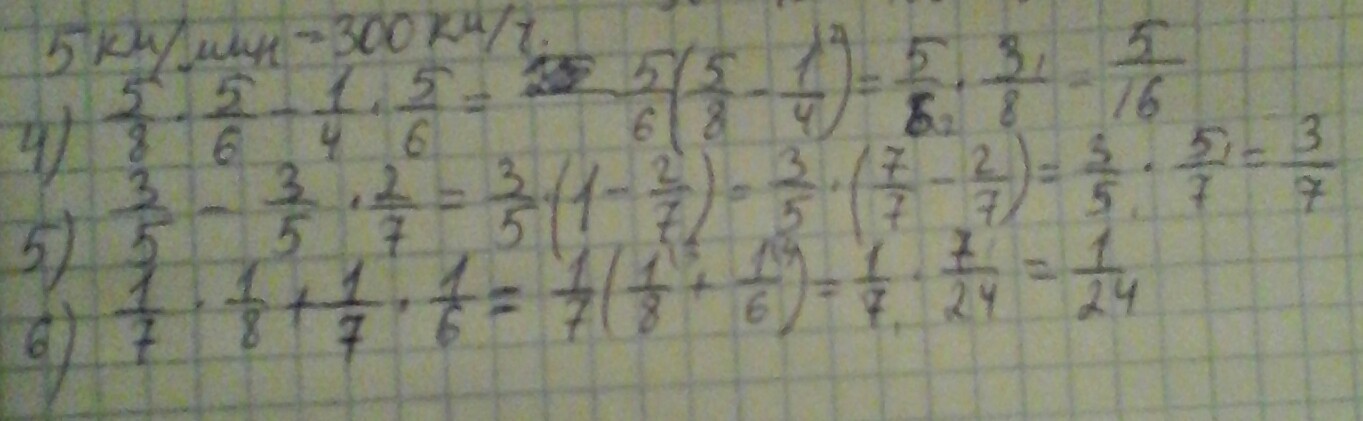 5 км/мин = 300 км/ч.
4) 5/8 · 5/6 - 1/4 · 5/6 = 5/6 (5/8 - 1/4) = 5/6 · 3/8 = 5/16
5) 3/5 - 3/5 · 2/7 = 3/5 · (1 - 2/7) = 3/5 · (7/7 - 2/7) = 3/5 · 5/7 = 3/7
6) 1/7 · 1/8 + 1/7 · 1/6 = 1/7 (1/8 + 1/6) = 1/7 · 7/24 = 1/24